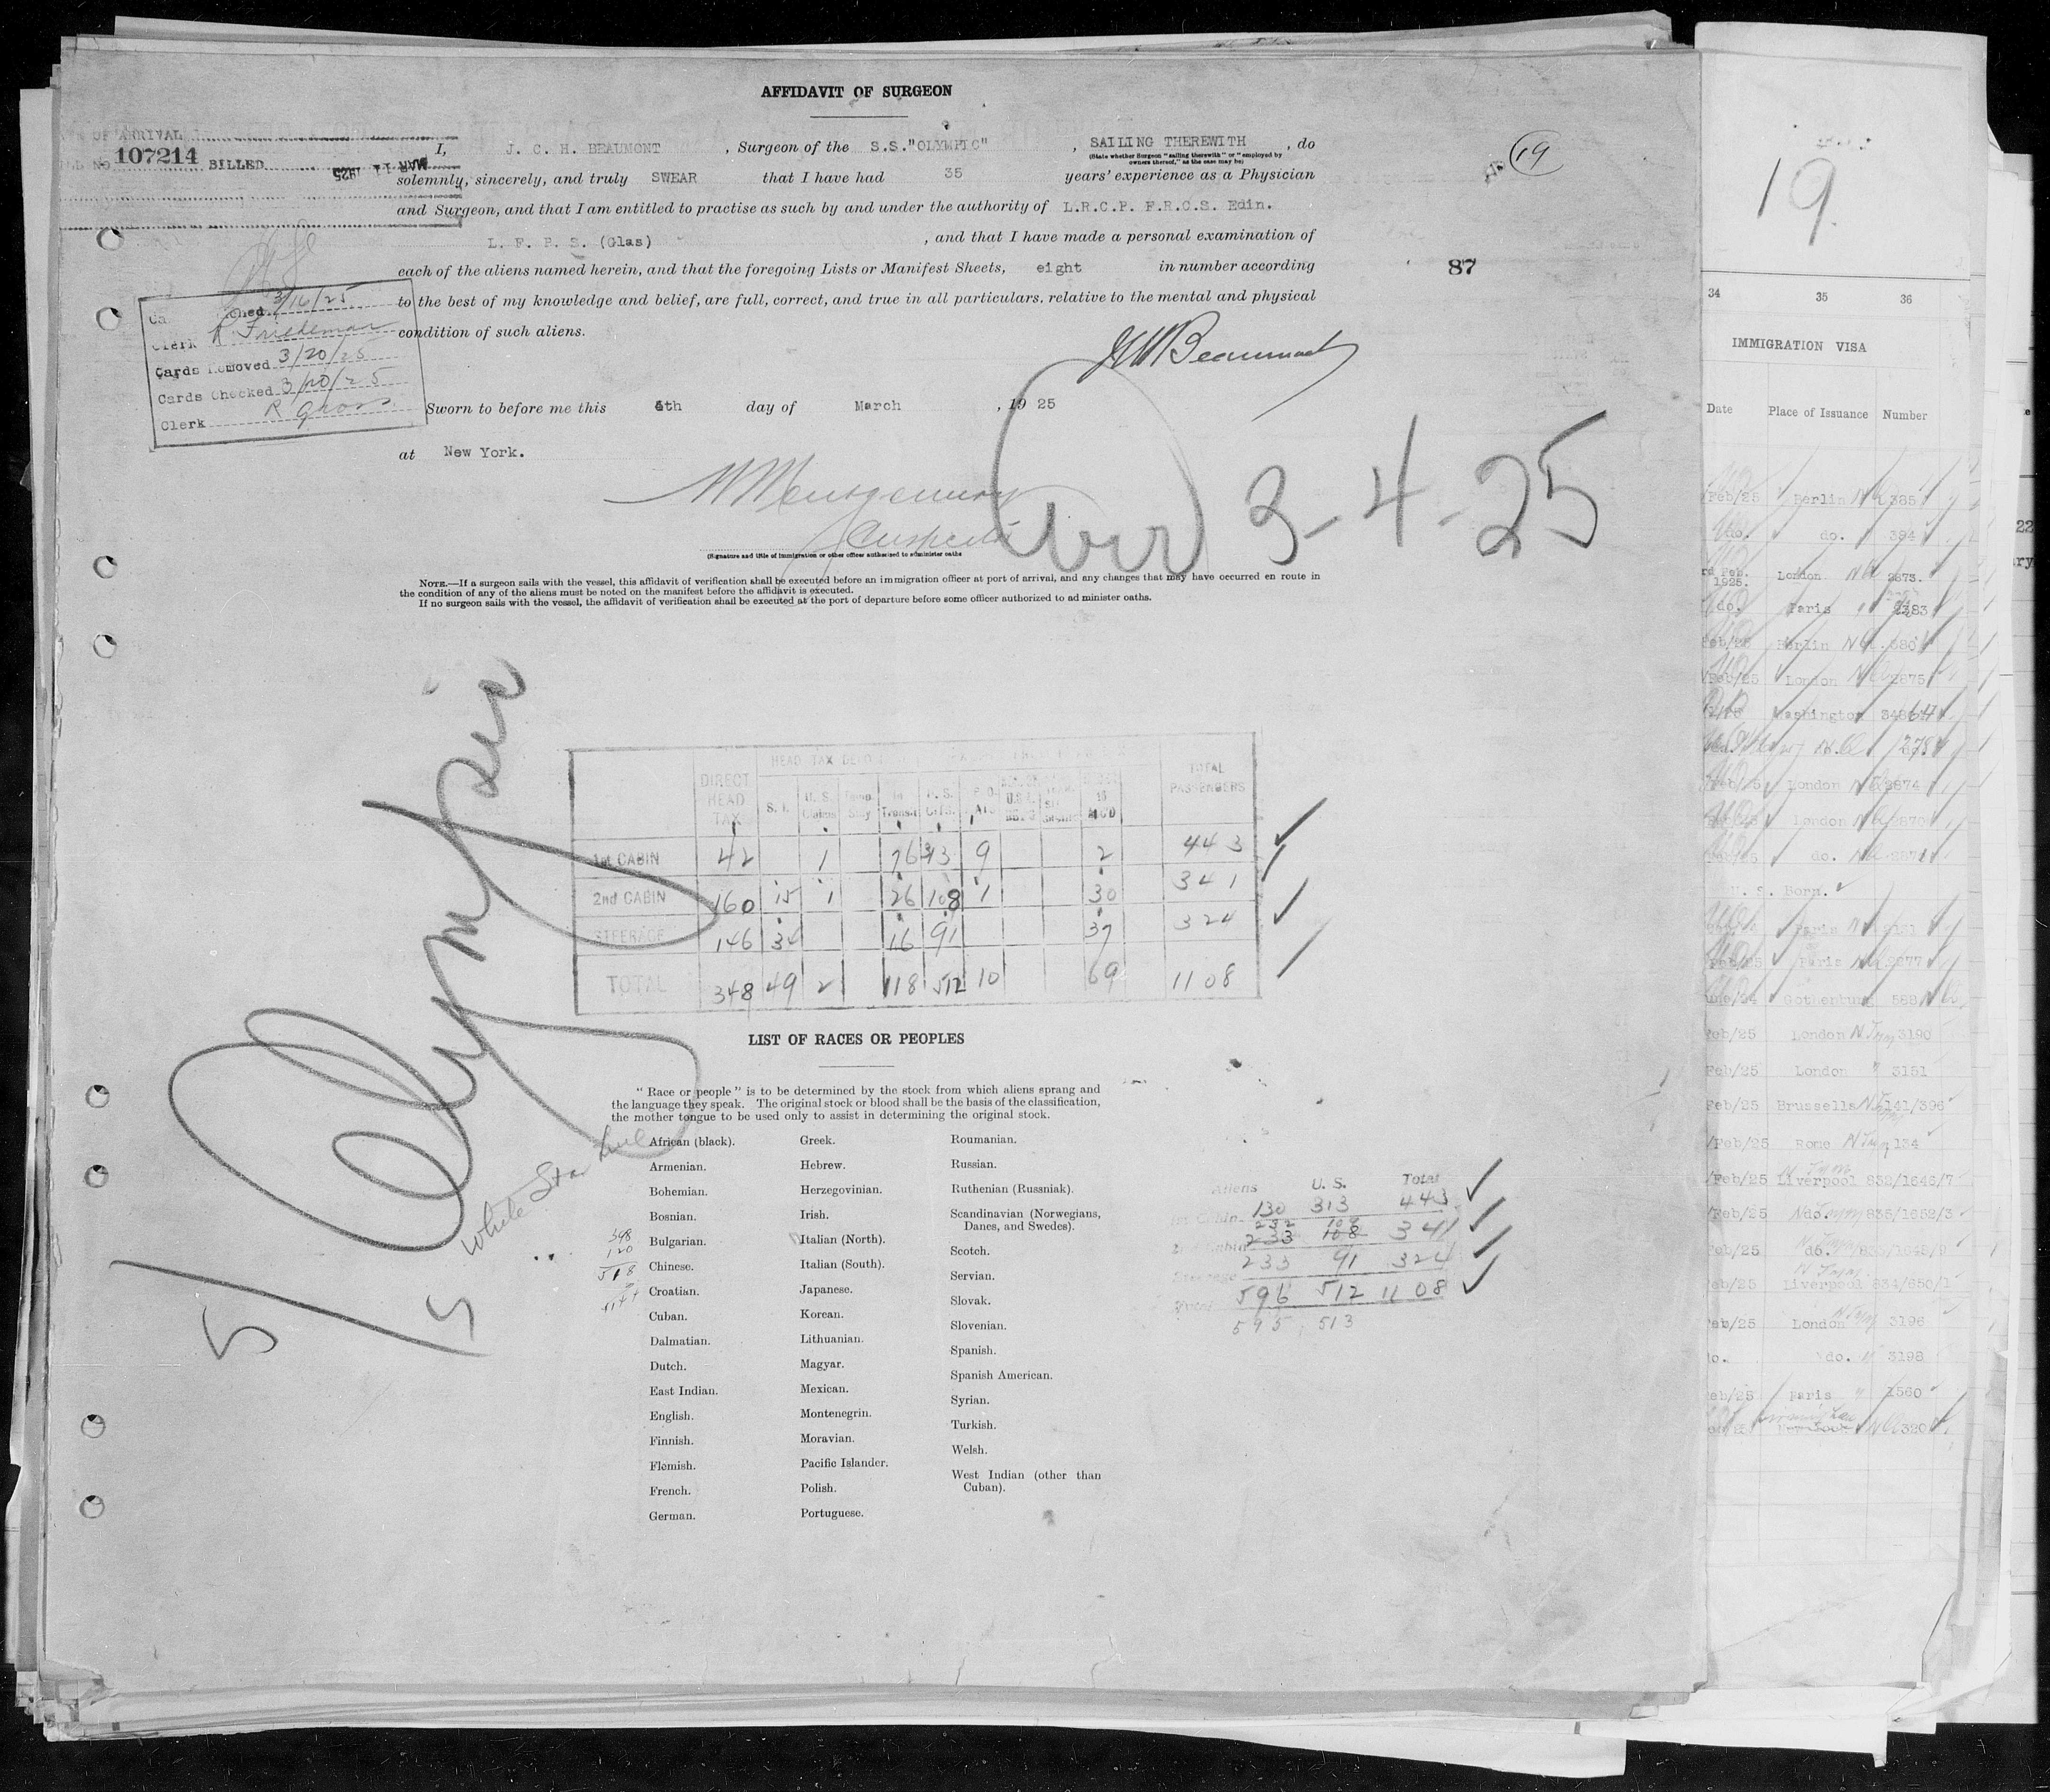 AFFIDAVIT OF SURGEON
OF ARRIVAL
107214 BILLED MAR 11 1925
19
I, J. C. H. BEAUMONT, Surgeon of the S.S."OLYMPIC", SAILING THEREWITH, do
(State whether Surgeon "sailing therewith" or "employed by
owners thereof," as the case may be)
solemnly, sincerely, and truly SWEAR that I have had 35 years' experience as a Physician
and Surgeon, and that I am entitled to practise as such by and under the authority of L.R.C.P. F.R.C.S. Edin.
L. F. P. S. (Glas), and that I have made a personal examination of
each of the aliens named herein, and that the foregoing Lists or Manifest Sheets, eight in number according
87
to the best of my knowledge and belief, are full, correct, and true in all particulars, relative to the mental and physical
condition of such aliens.
3/16/25
Clerk R Friedeman
Cards Removed 3/20/25
Cards Checked 3/20/25
Clerk R Gross
JCHBeaumont
Sworn to before me this 4th day of March, 1925
at New York.
W Montgomery
Inspector
(Signature and title of immigration or other officer authorized to administer oaths
Arr 3-4-25
NOTE.—If a surgeon sails with the vessel, this affidavit of verification shall be executed before an immigration officer at port of arrival, and any changes that may have occurred en route in
the condition of any of the aliens must be noted on the manifest before the affidavit is executed.
If no surgeon sails with the vessel, the affidavit of verification shall be executed at the port of departure before some officer authorized to ad minister oaths.
Olympic
White Star Line
5 5
HEAD TAX
DIRECT HEAD TAX S. I. U. S. In Transit U. S. Citz. TOTAL PASSENGERS
1st CABIN 42 1 76 313 9 2 443
2nd CABIN 160 15 1 26 108 1 30 341
STEERAGE 146 34 16 91 37 324
TOTAL 348 49 2 118 512 10 69 1108
LIST OF RACES OR PEOPLES
"Race or people" is to be determined by the stock from which aliens sprang and
the language they speak. The original stock or blood shall be the basis of the classification,
the mother tongue to be used only to assist in determining the original stock.
African (black).
Armenian.
Bohemian.
Bosnian.
Bulgarian.
Chinese.
Croatian.
Cuban.
Dalmatian.
Dutch.
East Indian.
English.
Finnish.
Flemish.
French.
German.
Greek.
Hebrew.
Herzegovinian.
Irish.
Italian (North).
Italian (South).
Japanese.
Korean.
Lithuanian.
Magyar.
Mexican.
Montenegrin.
Moravian.
Pacific Islander.
Polish.
Portuguese.
Roumanian.
Russian.
Ruthenian (Russniak).
Scandinavian (Norwegians,
Danes, and Swedes).
Scotch.
Servian.
Slovak.
Slovenian.
Spanish.
Spanish American.
Syrian.
Turkish.
Welsh.
West Indian (other than
Cuban).
Aliens U. S. Total
1st Cabin 130 313 443
232 109
2nd Cabin 233 108 341
Steerage 233 91 324
Total 596 512 1108
595 513
19.
34 35 36
IMMIGRATION VISA
Date Place of Issuance Number
Feb/25 Berlin 385
do. do. 394
London 2873.
1925.
do. Paris
Feb/25 Berlin 380
Feb/25 London 2875
Washington
Feb/25 London 2874
London
do.
U. S. Born.
Paris
Feb/25 Paris
Gothenburg 588
Feb/25 London 3190
Feb/25 London 3151
Feb/25 Brussells 141/396
/Feb/25 Rome 134
/Feb/25 Liverpool 832/1646/7
/Feb/25 do. 835/1652/3
Feb/25 do.
Feb/25 Liverpool 834/650/1
Feb/25 London 3196
do. do. 3198
Feb/25 Paris 1560
New York 320